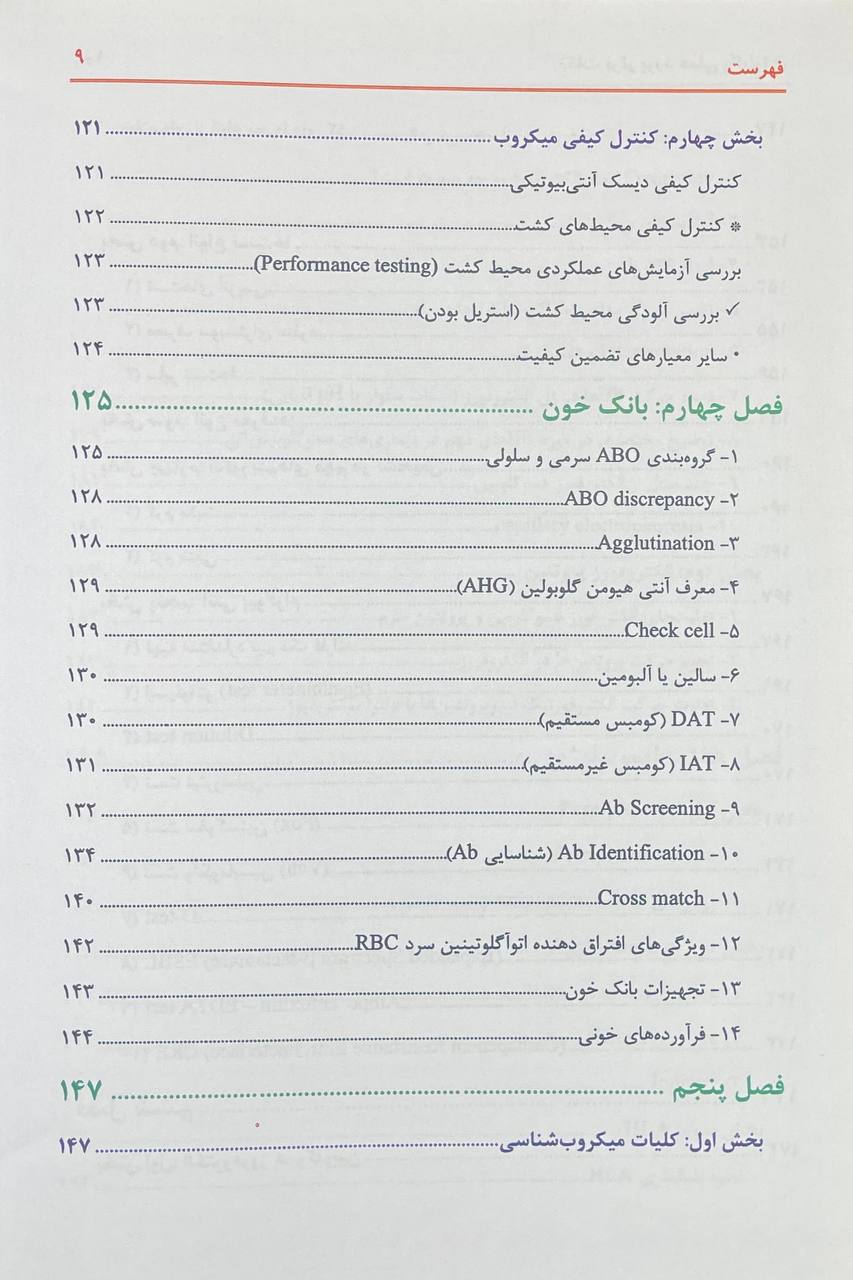 فهرست ۹
بخش چهارم: کنترل کیفی میکروب ۱۲۱
کنترل کیفی دیسک آنتی‌بیوتیکی ۱۲۱
* کنترل کیفی محیط‌های کشت ۱۲۲
بررسی آزمایش‌های عملکردی محیط کشت (Performance testing) ۱۲۳
✓ بررسی آلودگی محیط کشت (استریل بودن) ۱۲۳
• سایر معیارهای تضمین کیفیت ۱۲۴
فصل چهارم: بانک خون ۱۲۵
۱- گروه‌بندی ABO سرمی و سلولی ۱۲۵
۲- ABO discrepancy ۱۲۸
۳- Agglutination ۱۲۸
۴- معرف آنتی هیومن گلوبولین (AHG) ۱۲۹
۵- Check cell ۱۲۹
۶- سالین یا آلبومین ۱۳۰
۷- DAT (کومبس مستقیم) ۱۳۰
۸- IAT (کومبس غیرمستقیم) ۱۳۱
۹- Ab Screening ۱۳۲
۱۰- Ab Identification (شناسایی Ab) ۱۳۴
۱۱- Cross match ۱۴۰
۱۲- ویژگی‌های افتراق دهنده اتوآگلوتینین سرد RBC ۱۴۲
۱۳- تجهیزات بانک خون ۱۴۳
۱۴- فرآورده‌های خونی ۱۴۴
فصل پنجم ۱۴۷
بخش اول: کلیات میکروب‌شناسی ۱۴۷